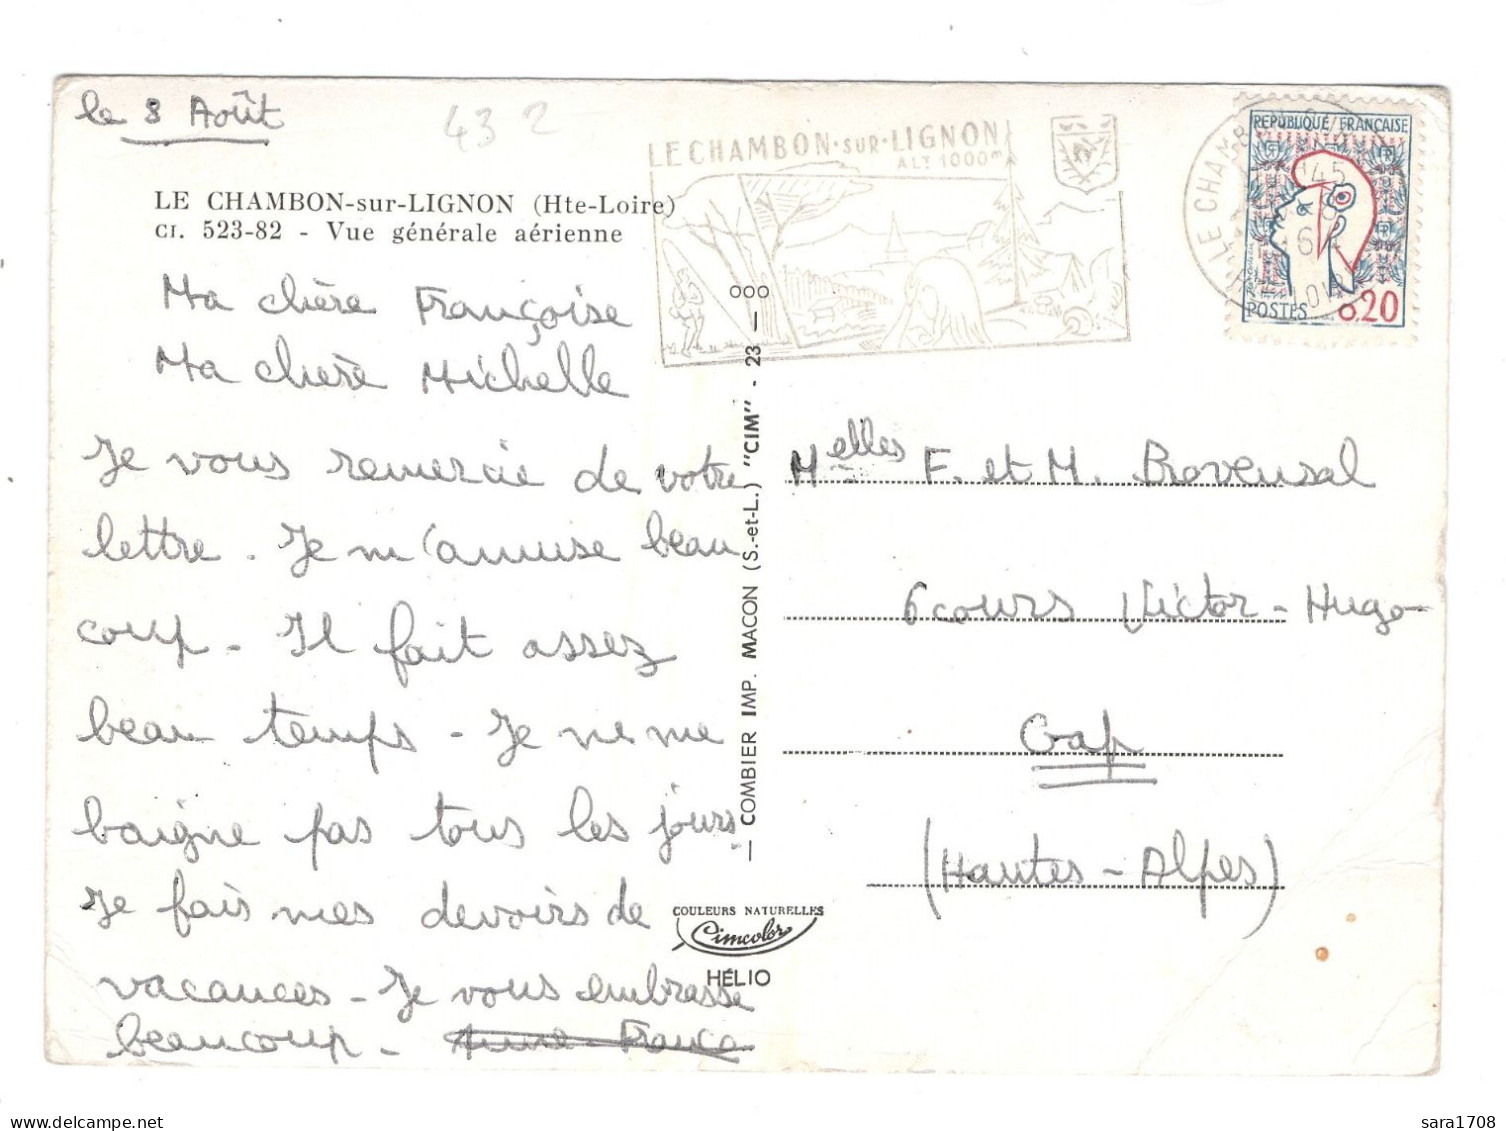 le 8 Août
43 2
LE CHAMBON-sur-LIGNON (Hte-Loire)
CI. 523-82 - Vue générale aérienne
LE CHAMBON·SUR·LIGNON
ALT 1000m
REPUBLIQUE FRANÇAISE
POSTES 0.20
Ma chère Françoise
Ma chère Michelle
Je vous remercie de votre
lettre. Je m'amuse beau
coup - Il fait assez
beau temps - Je ne me
baigne pas tous les jours
Je fais mes devoirs de
vacances - Je vous embrasse
beaucoup - Anne França
— COMBIER IMP. MACON (S.-et-L.) "CIM" - 23 — 000
COULEURS NATURELLES
Cimcolor
HÉLIO
Melles F. et M. Provensal
6 cours Victor-Hugo-
Gap
(Hautes-Alpes)
sara1708